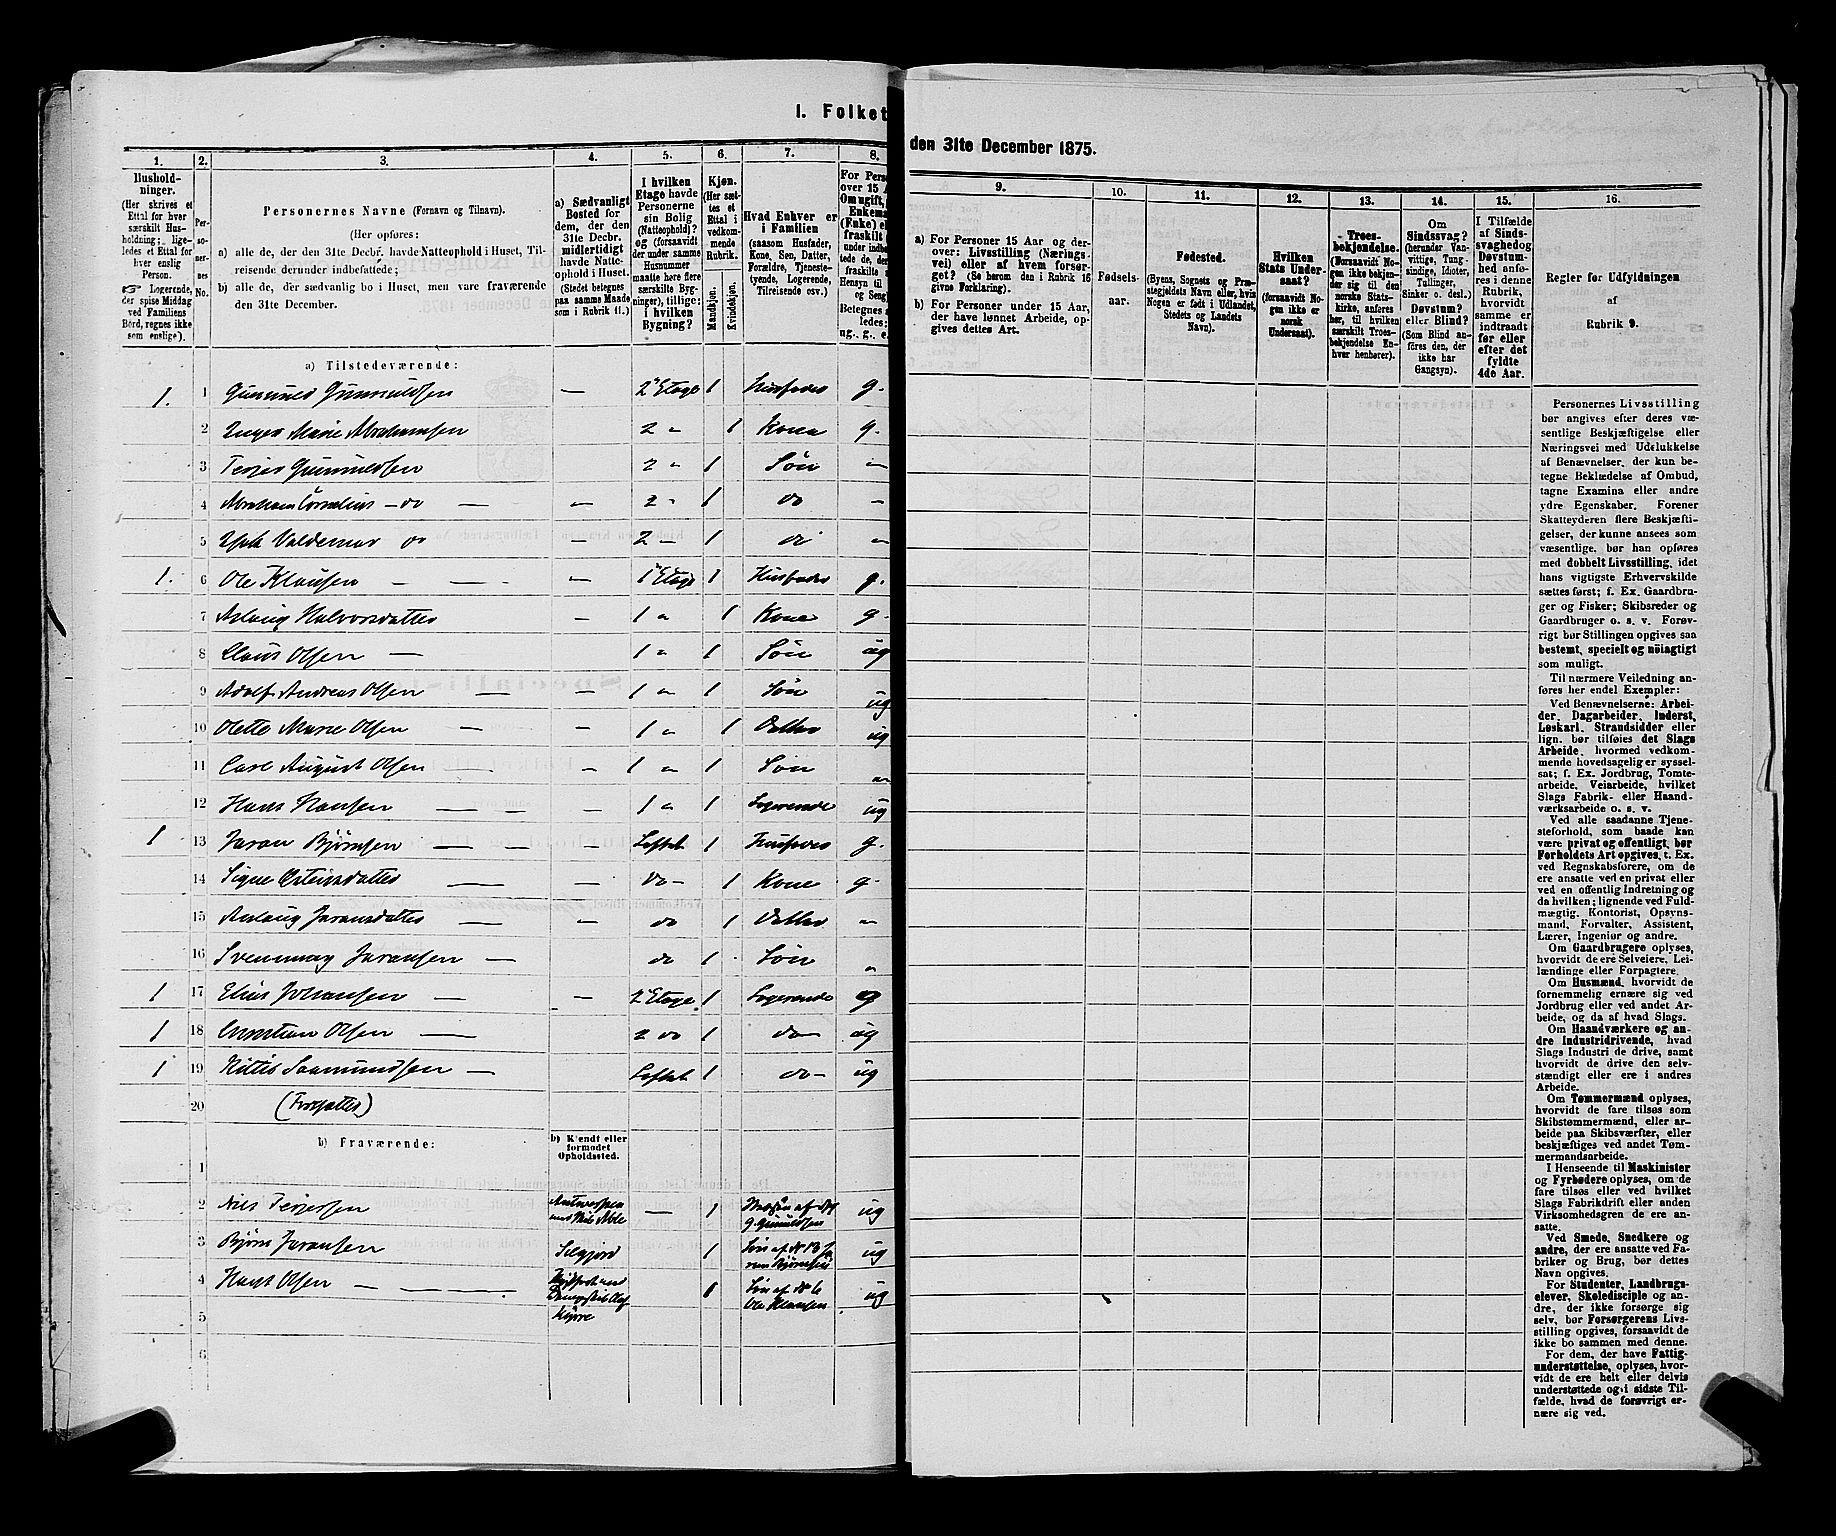 I. Folket
den 31te December 1875.
1. 2. 3. 4. 5. 6. 7. 8.
Husholdninger.
(Her skrives et
Ettal for hver
særskilt Husholdning;
ligeledes et Ettal
for hver
enslig
Person.
Logerende,
der spise Middag
ved Familiens
Bord, regnes ikke
som enslige).
Personernes No.
Personernes Navne (Fornavn og Tilnavn).
(Her opføres:
a) alle de, der den 31te Decbr. havde Natteophold i Huset, Tilreisende
derunder indbefattede;
b) alle de, der sædvanlig bo i Huset, men vare fraværende
den 31te December.
a) Sædvanligt
Bosted for
dem, der den
31te Decbr.
midlertidigt
havde Natteophold
i Huset.
(Stedet betegnes
paa samme Maade
som i Rubrik 11.)
I hvilken
Etage havde
Personerne
sin Bolig
(Natteophold)?
og (forsaavidt
der under samme
Husnummer
maatte høre flere
særskilte Bygninger),
tillige:
i hvilken
Bygning?
Kjøn.
(Her sættes
et
Ettal i
vedkommende
Rubrik.
Mandkjøn.
Kvindekjøn.
Hvad Enhver er
i Familien
(saasom Husfader,
Kone, Søn, Datter,
Forældre, Tjenestetyende,
Logerende,
Tilreisende osv.)
For Pers
over 15 A
Om ugift,
Enkema
(Enke) e
fraskilt
a) Tilstedeværende:
1. 1 Gunuld Gunnuldsen — 2 Etage 1 Husfader g.
2 Inger Marie Abrahamsen 2 " 1 Kone g.
3 Terjes Gunnuldsen 2 " 1 Søn —
4 Abraham Cornelius — do — — 2 - 1 do —
5 Valdemar do — 2 — 1 do —
1. 6 Ole Klausen — — — 1 Etage 1 Husfader g.
7 Aslaug Halvorsdatter — 1 " 1 Kone g.
8 Claus Olsen — 1 " 1 Søn ug
9 Adolf Andreas Olsen — — 1 " 1 Søn ug
10 Olette Marie Olsen — — 1 " 1 Datter ug
11 Carl August Olsen — — 1 " 1 Søn —
12 Hans Hansen — — 1 " 1 Logerende ug
1 13 Jøran Bjørnsen — — — Loftet 1 Husfader g.
14 Signe Østensdatter — — do — 1 Kone g.
15 Aslaug Jøransdatter — — do 1 Datter —
16 Svenning Jøransen — do 1 Søn —
1 17 Elias Johansen — — 2 Etage 1 Logerende g
1 18 Christian Olsen — 2 do 1 do — ug
1 19 Kittil Saamundsen — Loftet 1 do — ug
20 (Forsatter)
b) Fraværende:
b) Kjendt eller
formodet
Opholdssted.
1
2 Nils Terjesen Antwerpen — 1 ug
g Gunuldsen
3 Bjørn Jøransen Silgjord 1 Søn af No 13 ug
4 Hans Olsen — — — 1 Søn af No 6 ug
Ole Klausen
5
6
9. 10. 11. 12. 13. 14. 15. 16.
a) For Personer 15 Aar og derover:
Livsstilling (Næringsvei)
eller af hvem forsørget?
(Se herom den i Rubrik 16
givne Forklaring.)
b) For Personer under 15 Aar,
der have lønnet Arbeide, opgives
dettes Art.
Fødselsaar.
Fødested.
(Byens, Sognets og Præstegjeldets
Navn eller, hvis
Nogen er født i Udlandet,
Stedets og Landets
Navn).
Hvilken
Stats Undersaat?
(forsaavidt Nogen
ikke er
norsk
Undersaat).
Troesbekjendelse.
(Forsaavidt Nogen
ikke bekjender
sig til den
norske Statskirke,
anføres
her, til hvilken
særskilt Troesbekjendelse
Enhver
henhører).
Om
Sindssvag?
(herunder Vanvittige,
Tungsindige,
Idioter,
Tullinger,
Sinker o. desl.)
Døvstum?
eller Blind?
(Som Blind anføres
den, der
ikke har
Gangsyn).
I Tilfælde
af Sindssvaghed
og
Døvstumhed
anføres
i denne
Rubrik,
hvorvidt
samme er
indtraadt
før eller
efter det
fyldte
4de Aar.
Regler før Udfyldningen
af
Rubrik 9.
Personernes Livsstilling
bør angives efter deres væsentlige
Beskjæftigelse eller
Næringsvei med Udelukkelse
af Benævnelser, der kun betegne
Beklædelse af Ombud,
tagne Examina eller andre
ydre Egenskaber. Forener
Skatteyderen flere Beskjæftigelser,
der kunne ansees som
væsentlige, bør han opføres
med dobbelt Livsstilling, idet
hans vigtigste Erhvervskilde
sættes først; f. Ex. Gaardbruger
og Fisker; Skibsreder og
Gaardbruger o. s. v. Forøvrigt
bør Stillingen opgives saa
bestemt, specielt og nøiagtigt
som muligt.
Til nærmere Veiledning anføres
her endel Exempler:
Ved Benævnelserne: Arbeider,
Dagarbeider, Inderst,
Løskarl, Strandsidder eller
lign. bør tilføies det Slags
Arbeide, hvormed vedkommende
hovedsagelig er sysselsat;
f. Ex. Jordbrug, Tomtearbeide,
Veiarbeide, hvilket
Slags Fabrik- eller Haandværksarbeide
o. s. v.
Ved alle saadanne Tjenesteforhold,
som baade kan
være privat og offentligt, bør
Forholdets Art opgives, t. Ex.
ved Regnskabsførere, om de
ere ansatte ved en privat eller
ved en offentlig Indretning og
da hvilken; lignende ved Fuldmægtig,
Kontorist, Opsynsmand,
Forvalter, Assistent,
Lærer, Ingeniør og andre.
Om Gaardbrugere oplyses,
hvorvidt de ere Selveiere, Leilændinge
eller Forpagtere.
Om Husmænd, hvorvidt de
fornemmelig ernære sig ved
Jordbrug eller ved andet Arbeide,
og da af hvad Slags.
Om Haandværkere og andre
Industridrivende, hvad
Slags Industri de drive, samt
hvorvidt de drive den selvstændigt
eller ere i andres
Arbeide.
Om Tømmermænd oplyses,
hvorvidt de fare tilsøs som
Skibstømmermænd, eller arbeide
paa Skibsværfter, eller
beskjæftiges ved andet Tømmermandsarbeide.
I Henseende til Maskinister
og Fyrbødere oplyses, om de
fare tilsøs eller ved hvilket
Slags Fabrikdrift eller anden
Virksomhedsgren de ere ansatte.
Ved Smede, Snedkere og
andre, der ere ansatte ved Fabriker
og Brug, bør dettes
Navn opgives.
For Studenter, Landbrugselever,
Skoledisciple og andre,
der ikke forsørge sig
selv, bør Forsørgerens Livsstilling
opgives, forsaavidt de
ikke bo sammen med denne.
For dem, der have Fattigunderstøttelse,
oplyses, hvorvidt
de ere helt eller delvis
understøttede og i sidste Tilfælde,
hvad de forøvrigt ernære
sig ved.